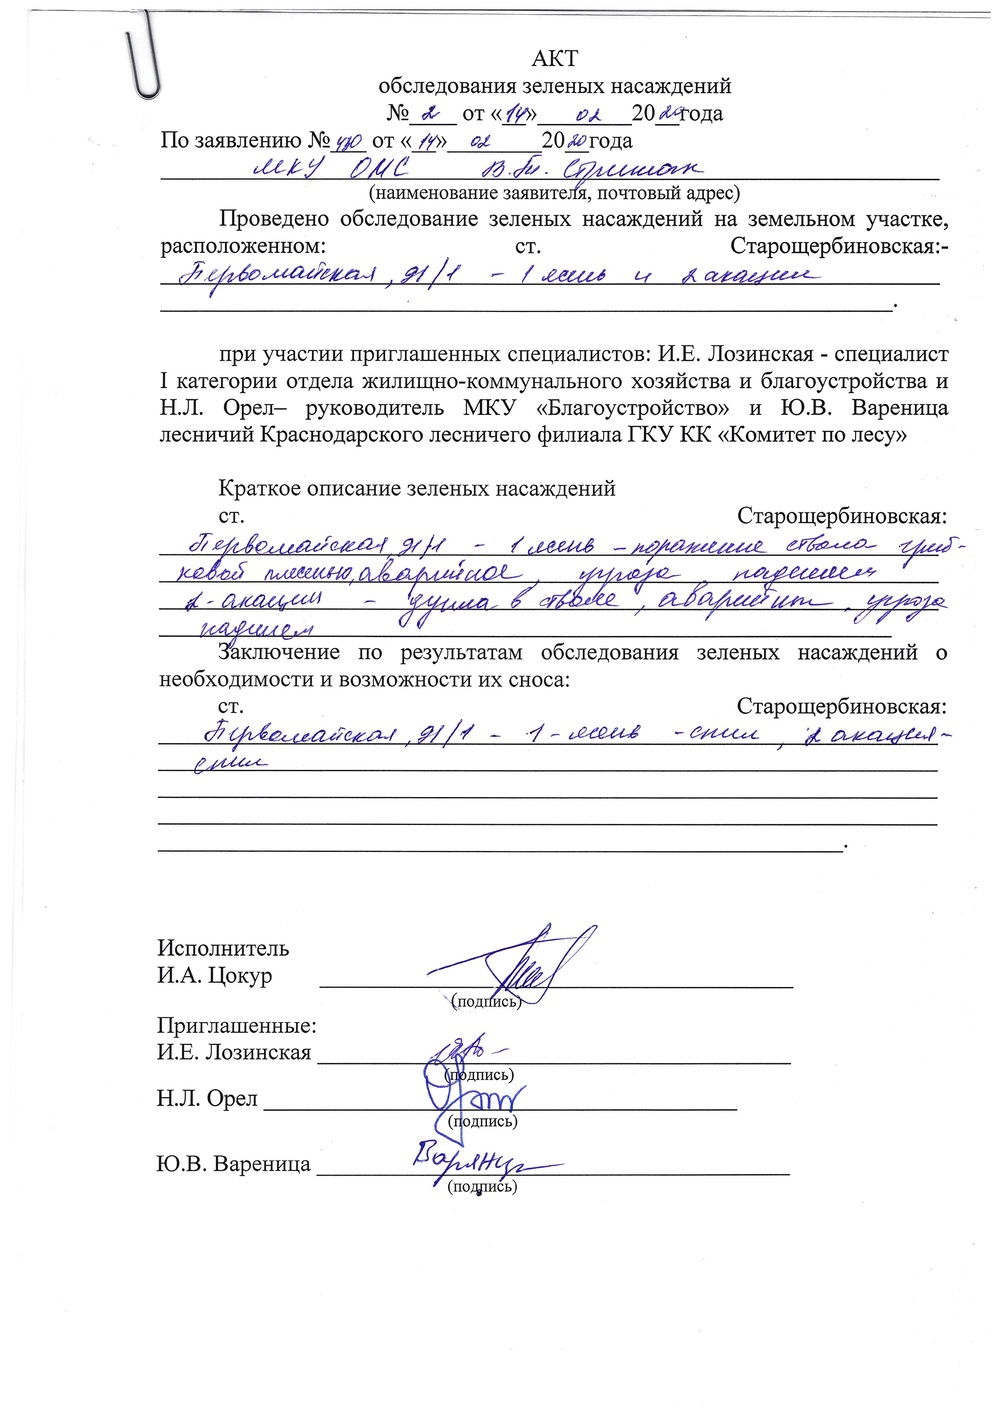 АКТ
обследования зеленых насаждений
№ 2 от «14» 02 2020 года
По заявлению № от «14» 02 2020 года
МКУ ОМС В.П.
(наименование заявителя, почтовый адрес)
Проведено обследование зеленых насаждений на земельном участке,
расположенном: ст. Старощербиновская:-
Первомайская, 91/1 - 1 ясень и 2 акации
.
при участии приглашенных специалистов: И.Е. Лозинская - специалист
I категории отдела жилищно-коммунального хозяйства и благоустройства и
Н.Л. Орел– руководитель МКУ «Благоустройство» и Ю.В. Вареница
лесничий Краснодарского лесничего филиала ГКУ КК «Комитет по лесу»
Краткое описание зеленых насаждений
ст. Старощербиновская:
Первомайская, 91/1 - 1 ясень - поражение ствола гриб-
ковой плесенью, аварийное, угроза падением
2 - акации - дупла в стволе, аварийн , угроза
падением
Заключение по результатам обследования зеленых насаждений о
необходимости и возможности их сноса:
ст. Старощербиновская:
Первомайская, 91/1 - 1 - ясень - спил, 2 акация -
спил
.
Исполнитель
И.А. Цокур
(подпись)
Приглашенные:
И.Е. Лозинская
(подпись)
Н.Л. Орел
(подпись)
Ю.В. Вареница
(подпись)